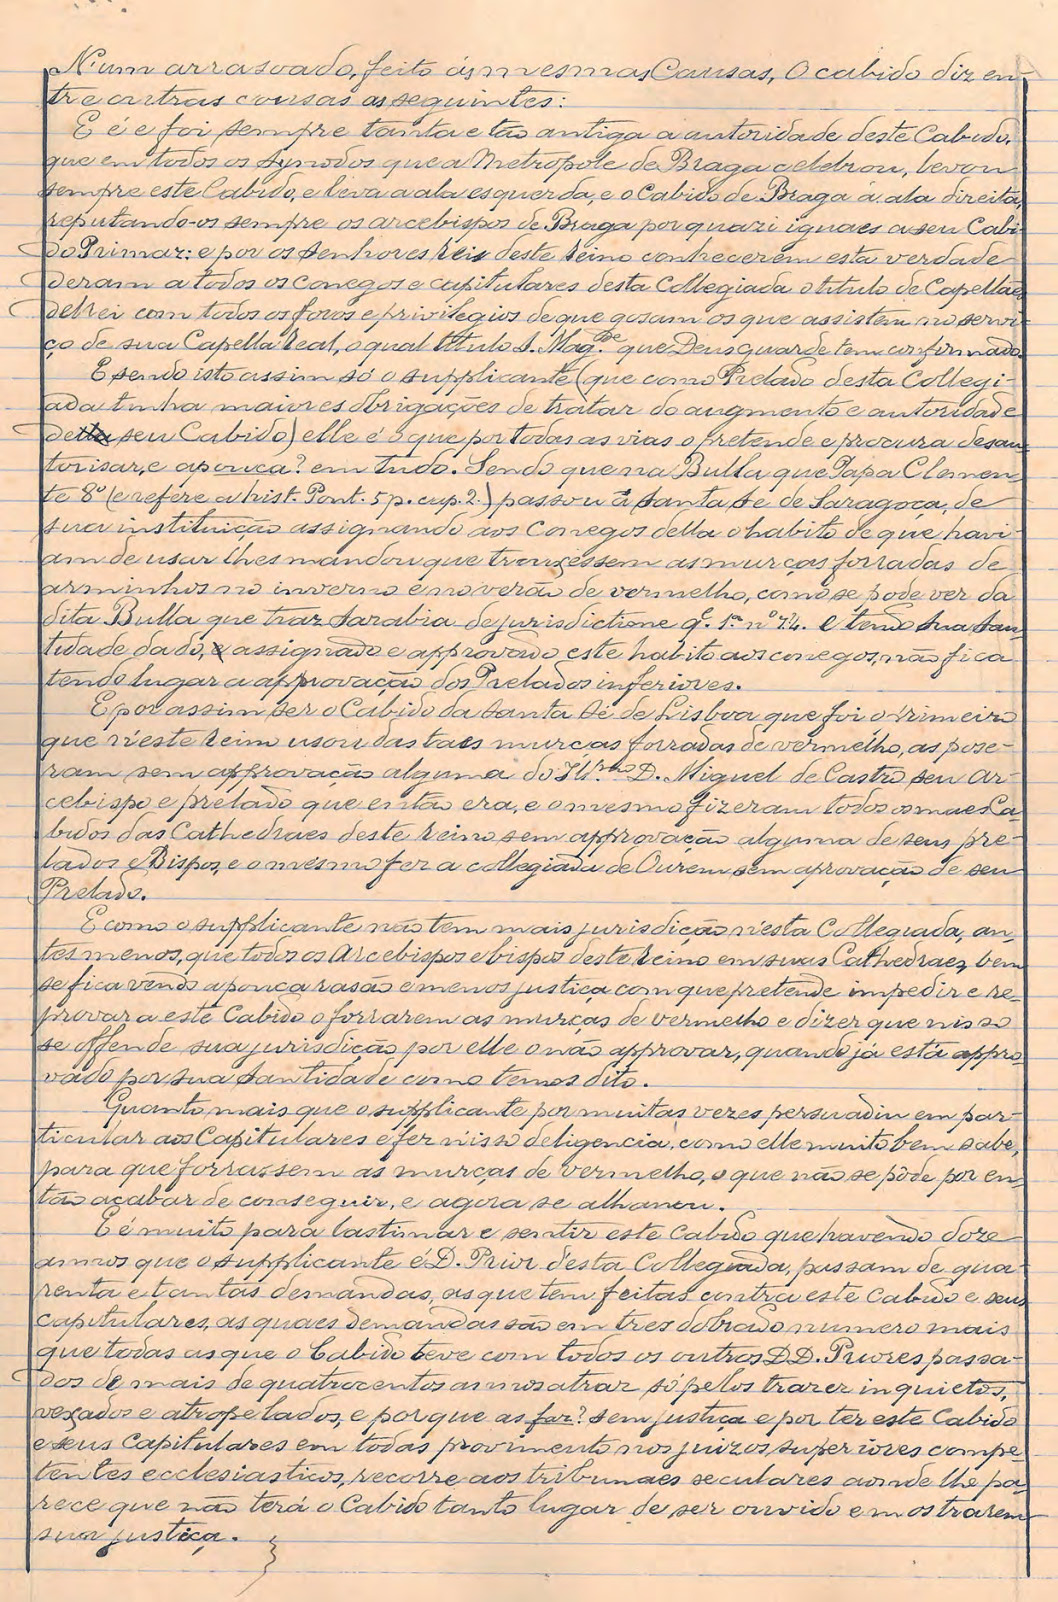 N'um arrasoado, feito ás mesmas Causas, O cabido diz en-
tre outras cousas as seguintes:
E é e foi sempre tanta e tão antiga a autoridade deste Cabido,
que em todos os Synodos que a Metropole de Braga celebrou, levou
sempre este Cabido, e leva a ala esquerda, e o Cabido de Braga a ala direita,
reputando-os sempre os arcebispos de Braga por quazi iguaes a seu Cabi-
do Primaz: e por os Senhores Reis deste Reino conhecerem esta verdade
deram a todos os Conegos e capitulares desta Collegiada o titulo de Capellães
delRei com todos os foros e privilegios de que gosam os que assistem no servi-
ço de sua Capella Real, o qual titulo S. Mag.de que Deus guarde tem confirmado.
E sendo isto assim só o supplicante (que como Prelado desta Collegi-
ada tinha maiores obrigações de tratar do augmento e autoridade
de seu Cabido) elle é o que por todas as vias o pretende e procura desau-
torisar, e apouca? em tudo. Sendo que na Bulla que Papa Clemen-
te 8º (e refere a hist. Pont. 5 p. cap. 2.) passou á Santa Sé de Saragoça, de
sua instituição assignando aos Conegos della o habito de que havi-
am de usar lhes mandou que trouxessem as murças forradas de
arminhos no inverno e no verão de vermelho, como se pode ver da
dita Bulla que traz Sarabia de jurisdictione q. 1ª nº 74. E tendo Sua San-
tidade dado, assignado e approvado este habito aos conegos, não fica
tendo lugar a approvação dos Prelados inferiores.
E por assim ser o Cabido da Santa Sé de Lisboa que foi o primeiro
que n'este Reino usou das taes murças forradas de vermelho, as pose-
ram sem approvação alguma do Ill.mo D. Miguel de Castro seu Ar-
cebispo e prelado que então era, e o mesmo fizeram todos os mais Ca-
bidos das Cathedraes deste Reino sem approvação alguma de seus pre-
lados e Bispos, e o mesmo fez a collegiada de Ourem sem aprovação de seu
Prelado.
E como o supplicante não tem mais jurisdição n'esta Collegiada, an-
tes menos, que todos os Arcebispos e bispos deste Reino em suas Cathedraes, bem
se fica vendo a pouca rasão e menos justiça com que pretende impedir e re-
provar a este Cabido o forrarem as murças de vermelho e dizer que nisso
se offende sua jurisdição por elle o não approvar, quando já está appro-
vado por sua Santidade como temos dito.
Quanto mais que o supplicante por muitas vezes persuadiu em par-
ticular aos Capitulares e fez n'isso deligencia, como elle muito bem sabe,
para que forrassem as murças de vermelho, o que não se pôde por en-
tão acabar de conseguir, e agora se alhanou.
E é muito para lastimar e sentir este Cabido que havendo doze
annos que o supplicante é D. Prior desta Collegiada, passam de qua-
renta e tantas demandas, as que tem feitas contra este Cabido e seus
capitulares, as quaes demandas são em tres dobrado numero mais
que todas as que o Cabido teve com todos os outros DD. Priores passa-
dos de mais de quatrocentos annos atraz só pelos trazer inquietos,
vexados e atropelados, e porque as faz? sem justiça e por ter este Cabido
e seus Capitulares em todas provimento nos juizos superiores compe-
tentes ecclesiasticos, recorre aos tribunaes seculares aonde lhe pa-
rece que não terá o Cabido tanto lugar de ser ouvido e mostrarem
sua justiça.